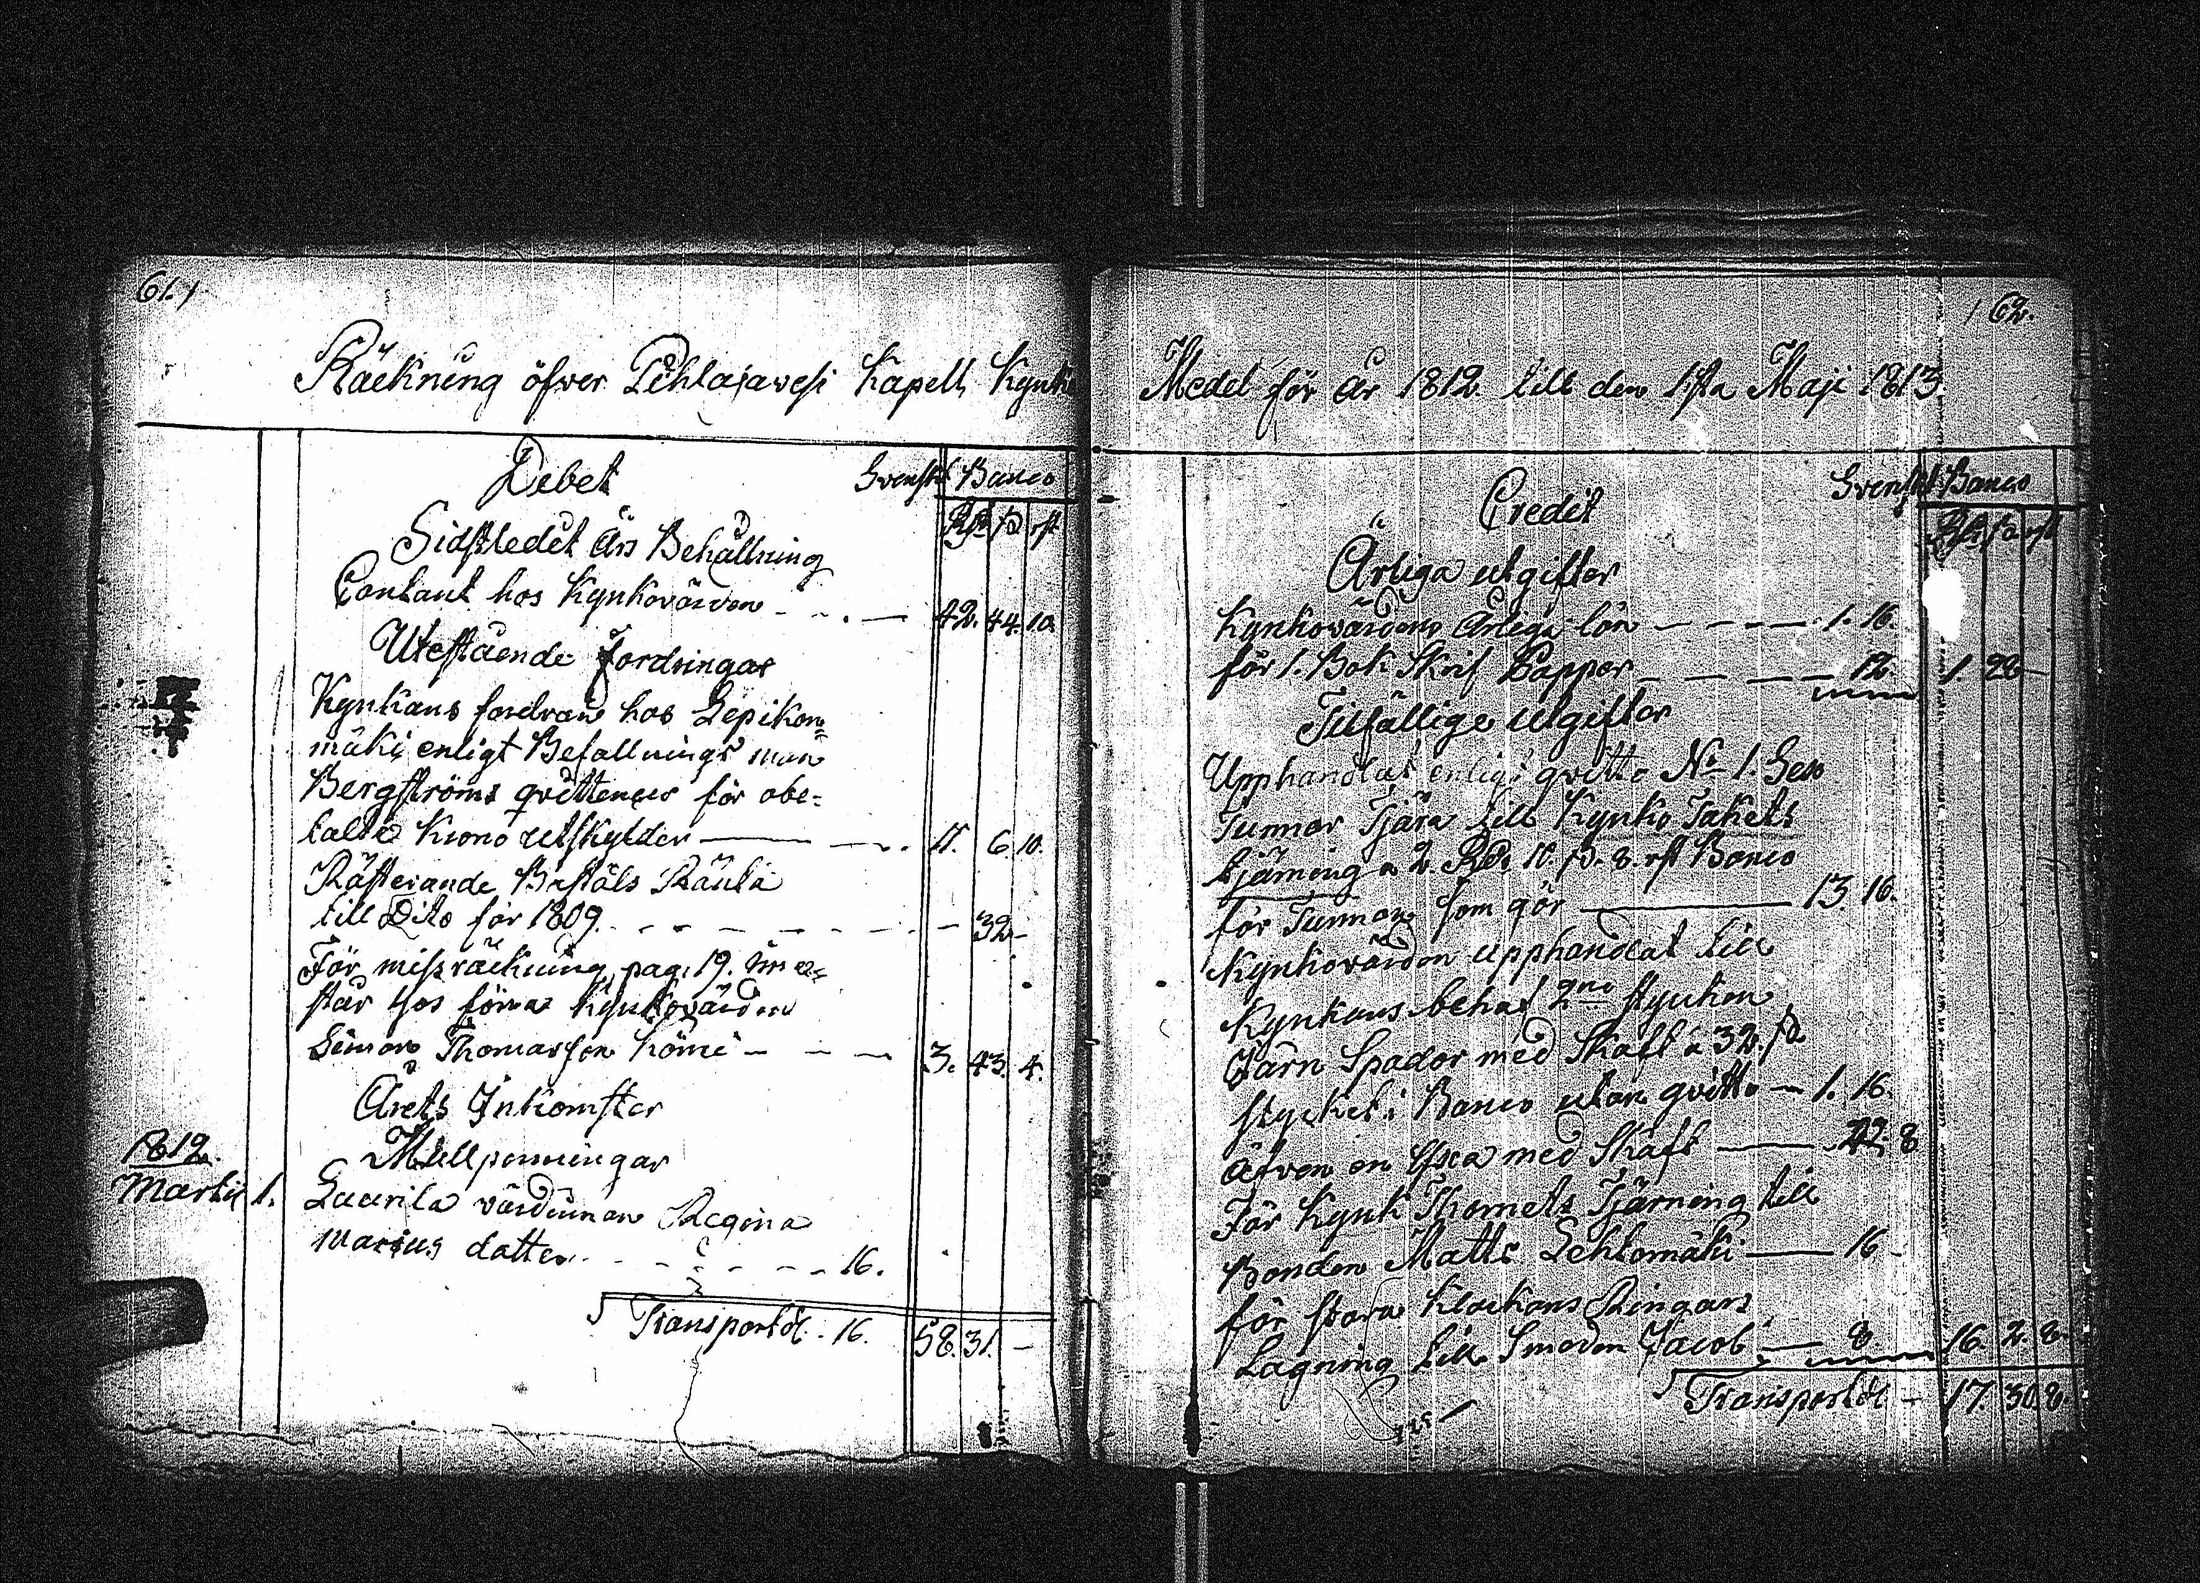 61.
Räckning öfver Pihlajavesi Kapell Kyrko
Debet Svenskt Banco
Rdr ß rst
Sidstledet Års Behållning
Contant hos Kyrkovärden 42. 44. 10.
Utestående Fordringar
Kyrkans fordran hos Lepikon=
mäki enligt Befallnings man
Bergströms qvittencer för obe=
talte Krono utskylder 11. 6. 10.
Räfterande Biståls Ränta
till Dito för 1809. 32
För missräckning pag. 19.
står hos förra Kyrkovärden
Simon Thomasson Kömi 3. 43. 4.
Årets Inkomster
Mullpenningar
1812.
Martii 1. Laurila värdinnan Regina
Marius dotter 16.
Transport dl. 16. 58. 31. -
62.
Medel för år 1812. till den 1sta Maji 1813
Credit Svenskt Banco
Rdr ß rst
Årliga utgifter
Kyrkovärdens Årliga lön 1. 16.
för 1. Bok Skrif Papper 12. 1. 28
Tilfällige utgifter
Upphandlat enligt qvitto No 1. Sex
Tunnor Tjära till Kyrko Takets
tjärning a 2. Rdr. 10. ß. 8. rst Banco
för Tunnan som gör 13. 16.
Kyrkovärden upphandlat till
Kyrkans behof 2ne stycken
Järn Spador med Skaft á 32. ß
stycket i Banco utan qvitto 1. 16.
Äfven en Yxa med Skaft 42. 8
För Kyrk Thornets Tjärning till
Bonden Matts Lehtomäki 16
för stora Klockans Ringars
Lagning till Smeden Jacob 8 16. 2. 8.
Transport dl 17. 30. 8.